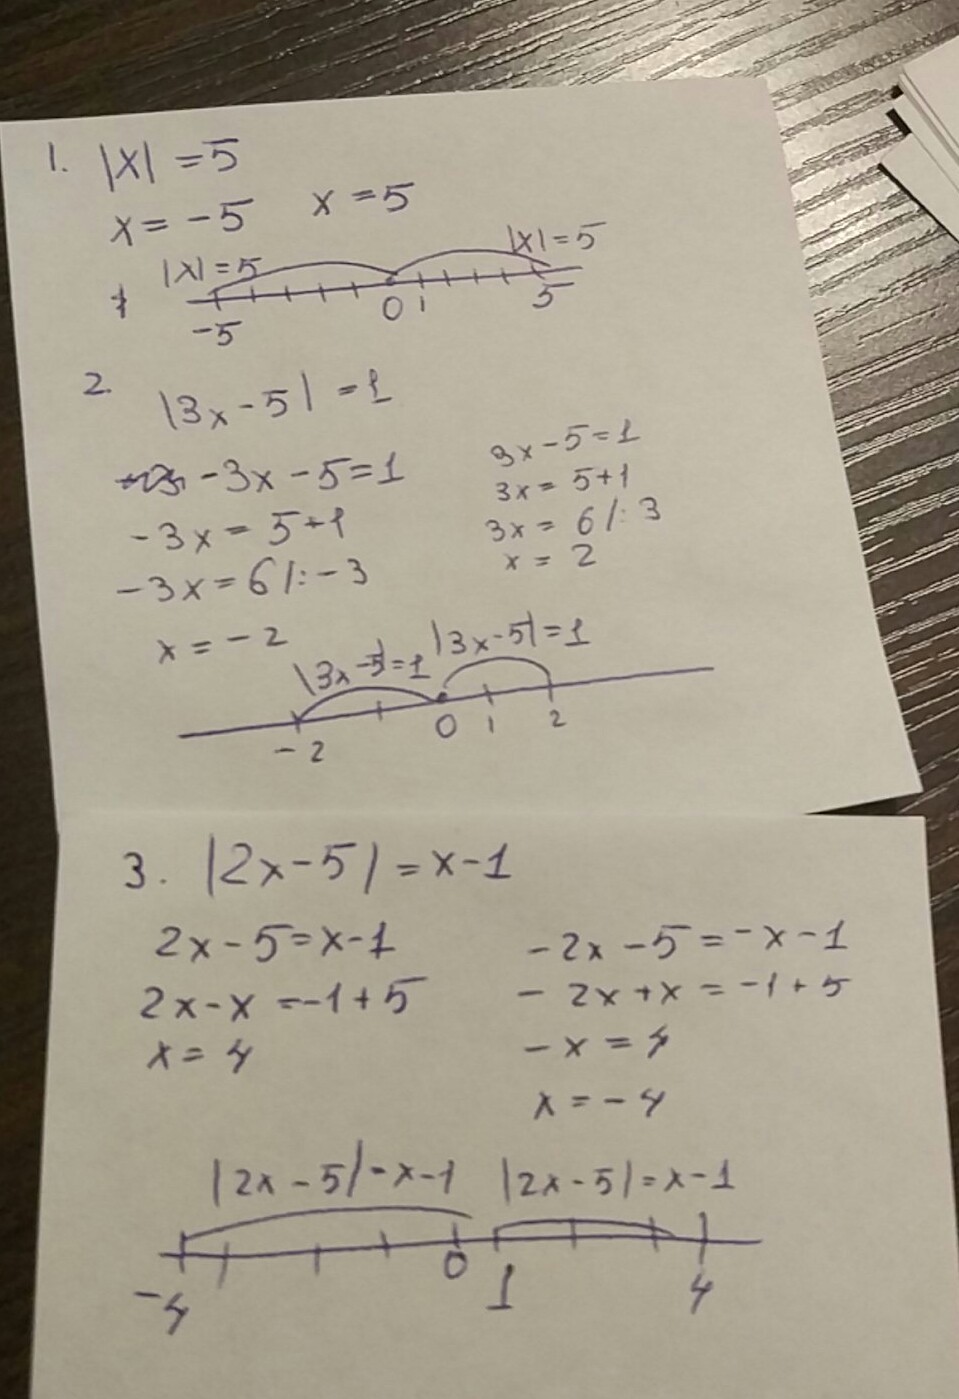 1. |x| = 5
x = -5 x = 5
|x| = 5 |x| = 5
-5 0 1 5
2.
|3x - 5| = 1
-3x - 5 = 1 3x - 5 = 1
-3x = 5 + 1 3x = 5 + 1
-3x = 6 /: -3 3x = 6 /: 3
x = -2 x = 2
|3x - 5| = 1 |3x - 5| = 1
-2 0 1 2
3. |2x - 5| = x - 1
2x - 5 = x - 1 -2x - 5 = -x - 1
2x - x = -1 + 5 -2x + x = -1 + 5
x = 4 -x = 4
x = -4
|2x - 5| = x - 1 |2x - 5| = x - 1
-4 0 1 4